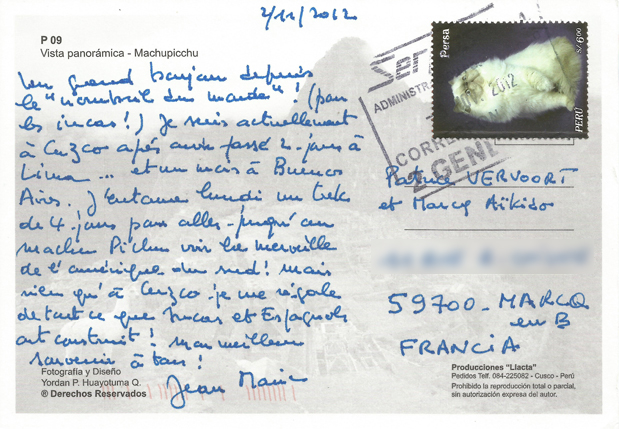 2/11/2012
P 09
Vista panorámica - Machupicchu
Un grand bonjour depuis
le "nombril du monde" ! (pour
les incas !) Je suis actuellement
à Cuzco après avoir passé 2 jours à
Lima ... et un mois à Buenos
Aires. J'entame lundi un trek
de 4 jours pour aller jusqu'au
Machu Pichu voir la merveille
de l'amérique du sud ! mais
rien qu'à Cuzco je me régale
de tout ce que Incas et Espagnols
ont construit ! Mon meilleur
souvenir à tous !
Jean Marie
Fotografía y Diseño
Yordan P. Huayotuma Q.
® Derechos Reservados
Persa
S/. 6.00
PERÚ
ADMINISTRA
2012
CORREO
Patrice VERVOORT
et Marcq Aikido
59700 - MARCQ
en B
FRANCIA
Producciones "Llacta"
Pedidos Telf. 084-225082 - Cusco - Perú
Prohibido la reproducción total o parcial,
sin autorización expresa del autor.